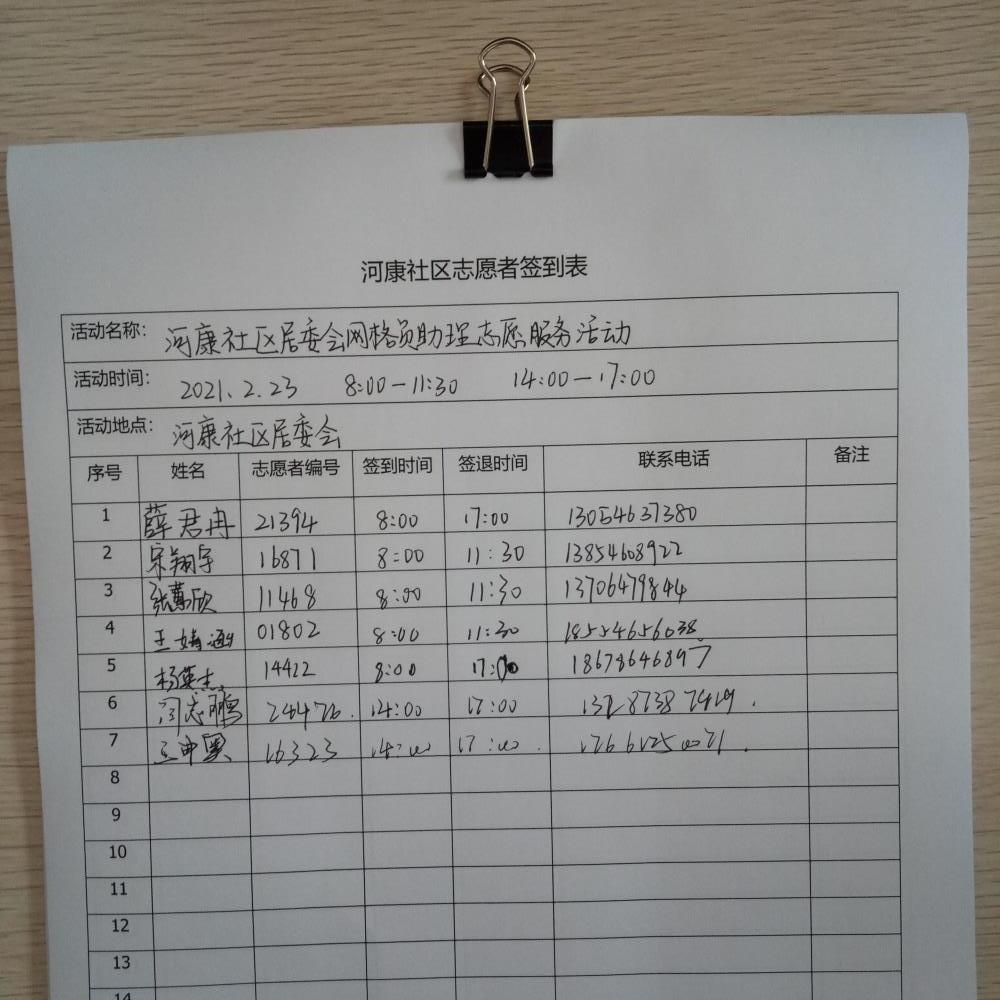 河康社区志愿者签到表
活动名称: 河康社区居委会网格员助理志愿服务活动
活动时间: 2021.2.23 8:00—11:30 14:00—17:00
活动地点: 河康社区居委会
序号 姓名 志愿者编号 签到时间 签退时间 联系电话 备注
1 薛君冉 21394 8:00 17:00 13054637380
2 宋翔宇 16871 8:00 11:30 13854608922
3 张蕙欣 11468 8:00 11:30 13706479844
4 王婧涵 01802 8:00 11:30 18554656038
5 杨英杰 14412 8:00 17:00 18678646897
6 闫志鹏 14:00 17:00
7 16323 14:00 17:00
8
9
10
11
12
13
14